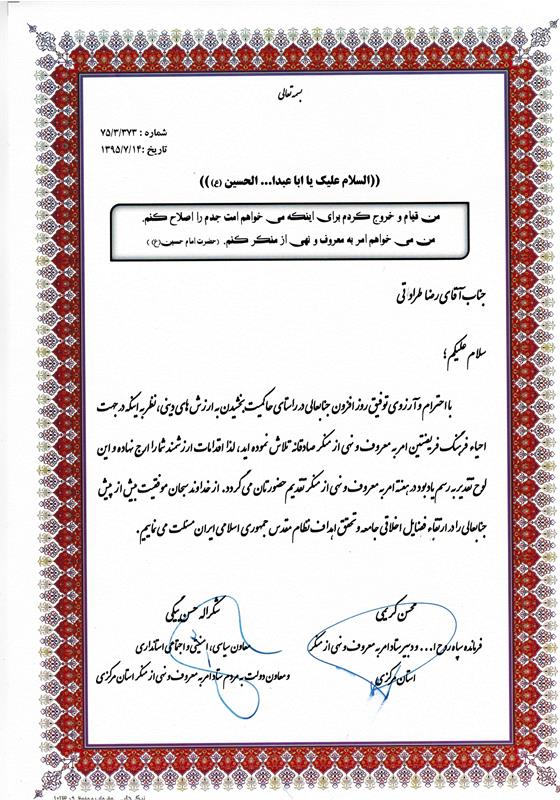 بسمه تعالی
شماره : ۷۵/۳/۳۷۳
تاریخ : ۱۳۹۵/۷/۱۴
((السلام علیک یا ابا عبدا... الحسین (ع)))
من قیام و خروج کردم برای اینکه می خواهم امت جدم را اصلاح کنم.
من می خواهم امر به معروف و نهی از منکر کنم. (حضرت امام حسین(ع))
جناب آقای رضا طراوتی
سلام علیکم ؛
با احترام و آرزوی توفیق روز افزون جنابعالی در راستای حاکمیت بخشیدن به ارزش های دینی، نظر به اینکه در جهت
احیاء فرهنگ فریضتین امر به معروف و نهی از منکر صادقانه تلاش نموده اید، لذا اقدامات ارزشمند شما را ارج نهاده و این
لوح تقدیر به رسم یادبود در هفته امر به معروف و نهی از منکر تقدیم حضورتان می گردد. از خداوند سبحان موفقیت بیش از پیش
جنابعالی را در ارتقاء فضایل اخلاقی جامعه و تحقق اهداف نظام مقدس جمهوری اسلامی ایران مسئلت می نماییم.
محسن کریمی
فرمانده سپاه روح ا... و دبیر ستاد امر به معروف و نهی از منکر
استان مرکزی
شکراله حسن بیگی
معاون سیاسی، امنیتی و اجتماعی استانداری
و معاون دولت به مردم ستاد امر به معروف و نهی از منکر استان مرکزی